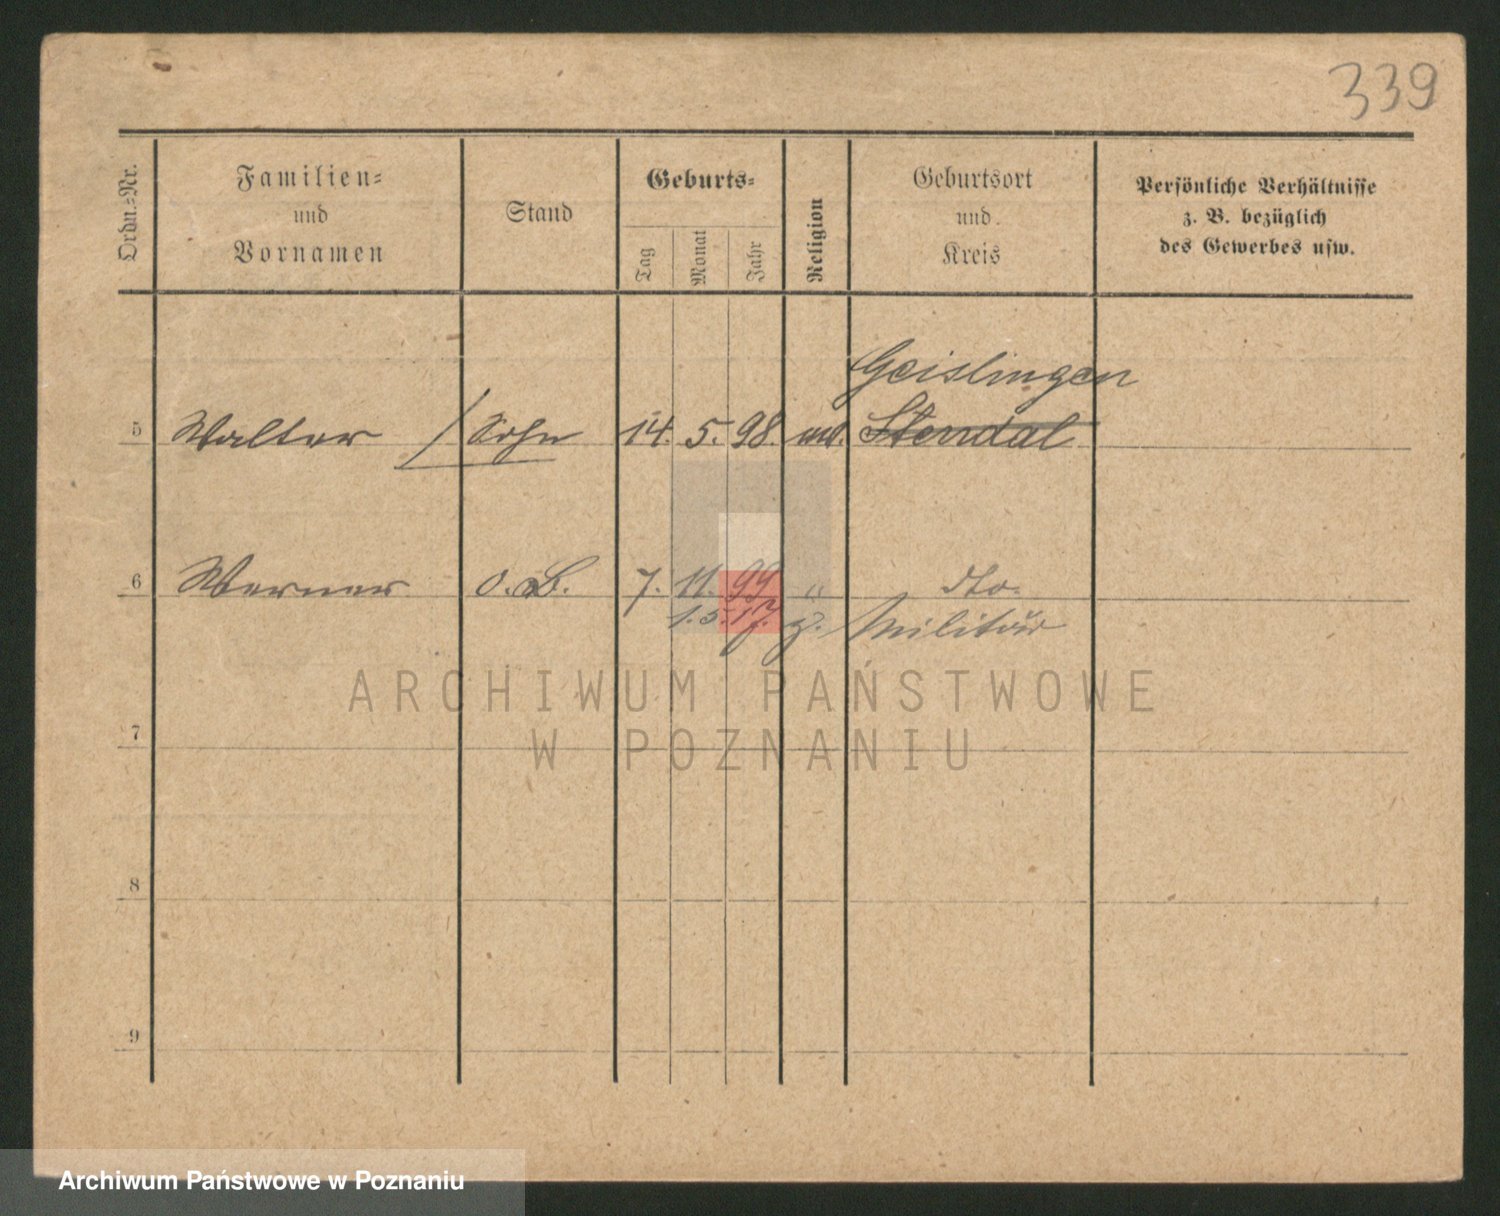 339
Ordn.-Nr.
Familien-
und
Vornamen
Stand
Geburts-
Tag
Monat
Jahr
Religion
Geburtsort
und
Kreis
Persönliche Verhältnisse
z. B. bezüglich
des Gewerbes usw.
Geislingen
5 Walter / Sohn 14. 5. 98. Stendal
6 Werner 7. 11. 99 " dto.
1. 5. 17. z. Militär
ARCHIWUM PAŃSTWOWE
W POZNANIU
7
8
9
Archiwum Państwowe w Poznaniu